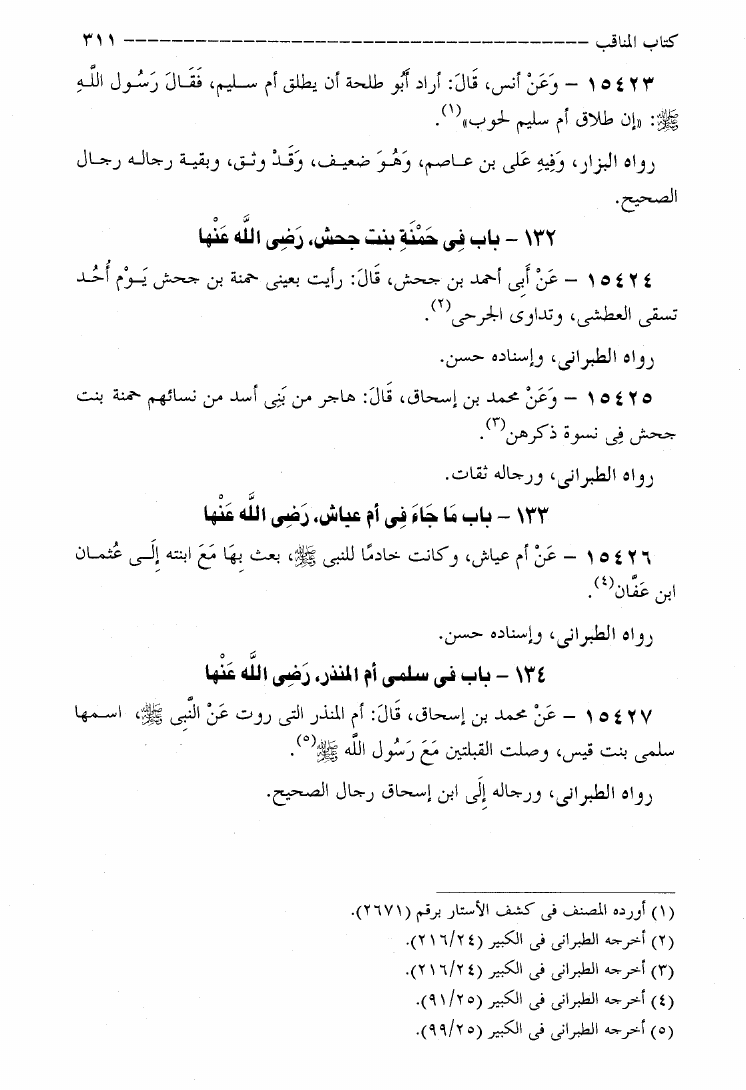 كتاب المناقب ---------------------------------------- ٣١١
١٥٤٢٣ – وَعَنْ أنس، قَالَ: أراد أَبُو طلحة أن يطلق أم سليم، فَقَالَ رَسُول اللَّهِ
ﷺ: «إن طلاق أم سليم لحوب»(١).
رواه البزار، وَفِيهِ عَلى بن عاصم، وَهُوَ ضعيف، وَقَدْ وثق، وبقية رجاله رجال
الصحيح.
١٣٢ – باب فِى حَمْنَةِ بنت جحش، رَضِى اللَّه عَنْها
١٥٤٢٤ – عَنْ أَبِى أحمد بن جحش، قَالَ: رأيت بعينى حمنة بن جحش يَوْم أُحُد
تسقى العطشى، وتداوى الجرحى(٢).
رواه الطبرانى، وإسناده حسن.
١٥٤٢٥ – وَعَنْ محمد بن إسحاق، قَالَ: هاجر من بَنِى أسد من نسائهم حمنة بنت
جحش فِى نسوة ذكرهن(٣).
رواه الطبرانى، ورجاله ثقات.
١٣٣ – باب مَا جَاءَ فِى أم عياش، رَضِى اللَّه عَنْها
١٥٤٢٦ – عَنْ أم عياش، وكانت خادمًا للنبى ﷺ، بعث بِهَا مَعَ ابنته إِلَى عُثمان
ابن عَفَّان(٤).
رواه الطبرانى، وإسناده حسن.
١٣٤ – باب فى سلمى أم المنذر، رَضِى اللَّه عَنْها
١٥٤٢٧ – عَنْ محمد بن إسحاق، قَالَ: أم المنذر التى روت عَنْ النَّبِى ﷺ، اسمها
سلمى بنت قيس، وصلت القبلتين مَعَ رَسُول اللَّه ﷺ(٥).
رواه الطبرانى، ورجاله إِلَى ابن إسحاق رجال الصحيح.
(١) أورده المصنف فى كشف الأستار برقم (٢٦٧١).
(٢) أخرجه الطبرانى فى الكبير (٢١٦/٢٤).
(٣) أخرجه الطبرانى فى الكبير (٢١٦/٢٤).
(٤) أخرجه الطبرانى فى الكبير (٩١/٢٥).
(٥) أخرجه الطبرانى فى الكبير (٩٩/٢٥).